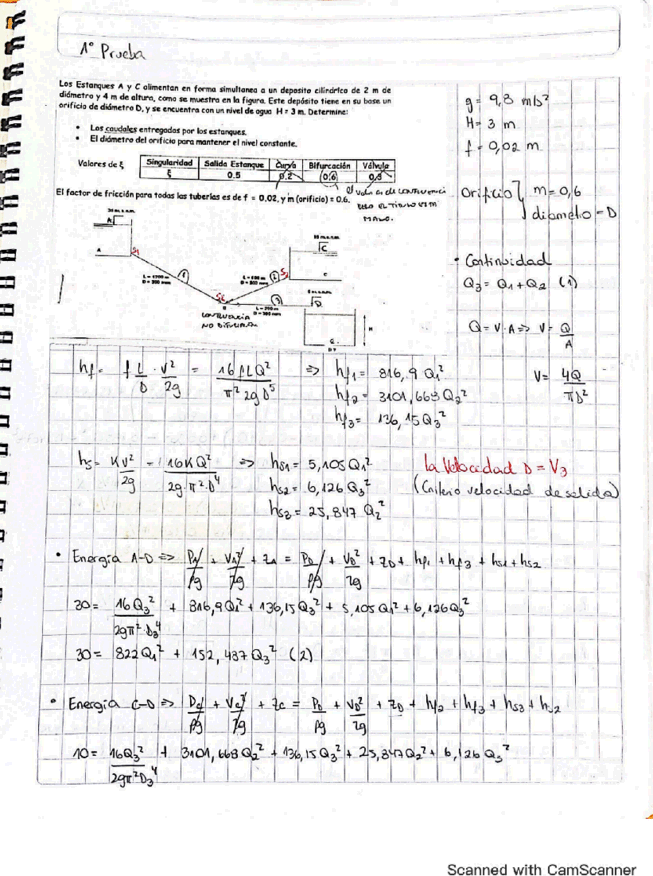 1° Prueba
Los Estanques A y C alimentan en forma simultanea a un deposito cilíndrico de 2 m de
diámetro y 4 m de altura, como se muestra en la figura. Este depósito tiene en su base un
orificio de diámetro D, y se encuentra con un nivel de agua H = 3 m. Determine:
• Los caudales entregados por los estanques.
• El diámetro del orificio para mantener el nivel constante.
Valores de ξ
Singularidad Salida Estanque Curva Bifurcación Válvula
ξ 0.5 0.2 0.6 0.5
El factor de fricción para todas las tuberías es de f = 0,02, y m (orificio) = 0.6.
g = 9,8 m/s²
H = 3 m
f = 0,02 m
Orificio } m = 0,6
diametro = D
• Continuidad
Q3 = Q1 + Q2 (1)
Q = V·A => V = Q/A
V = 4Q/πD²
A
S1
L = 1200 m
1
C
S3
2
3
D
H
CONFLUENCIA
NO BIFURCA.
hf = f L/D · V²/2g = 16fLQ²/π²2gD⁵ => hf1 = 816,9 Q1²
hf2 = 3101,668 Q2²
hf3 = 136,15 Q3²
hs = KV²/2g = 16KQ²/2g·π²·D⁴ => hs1 = 5,105 Q1²
hs2 = 6,126 Q3²
hs3 = 25,847 Q2²
La Velocidad D = V3
(Criterio velocidad de salida)
• Energía A-D => PA/ρg + VA²/2g + zA = PD/ρg + VD²/2g + zD + hf1 + hf3 + hs1 + hs2
30 = 16Q3²/2gπ²·D3⁴ + 816,9 Q1² + 136,15 Q3² + 5,105 Q1² + 6,126 Q3²
30 = 822 Q1² + 152,437 Q3² (2)
• Energía C-D => PC/ρg + VC²/2g + zC = PD/ρg + VD²/2g + zD + hf2 + hf3 + hs3 + hs2
10 = 16Q3²/2gπ²D3⁴ + 3101,668 Q2² + 136,15 Q3² + 25,847 Q2² + 6,126 Q3²
Scanned with CamScanner